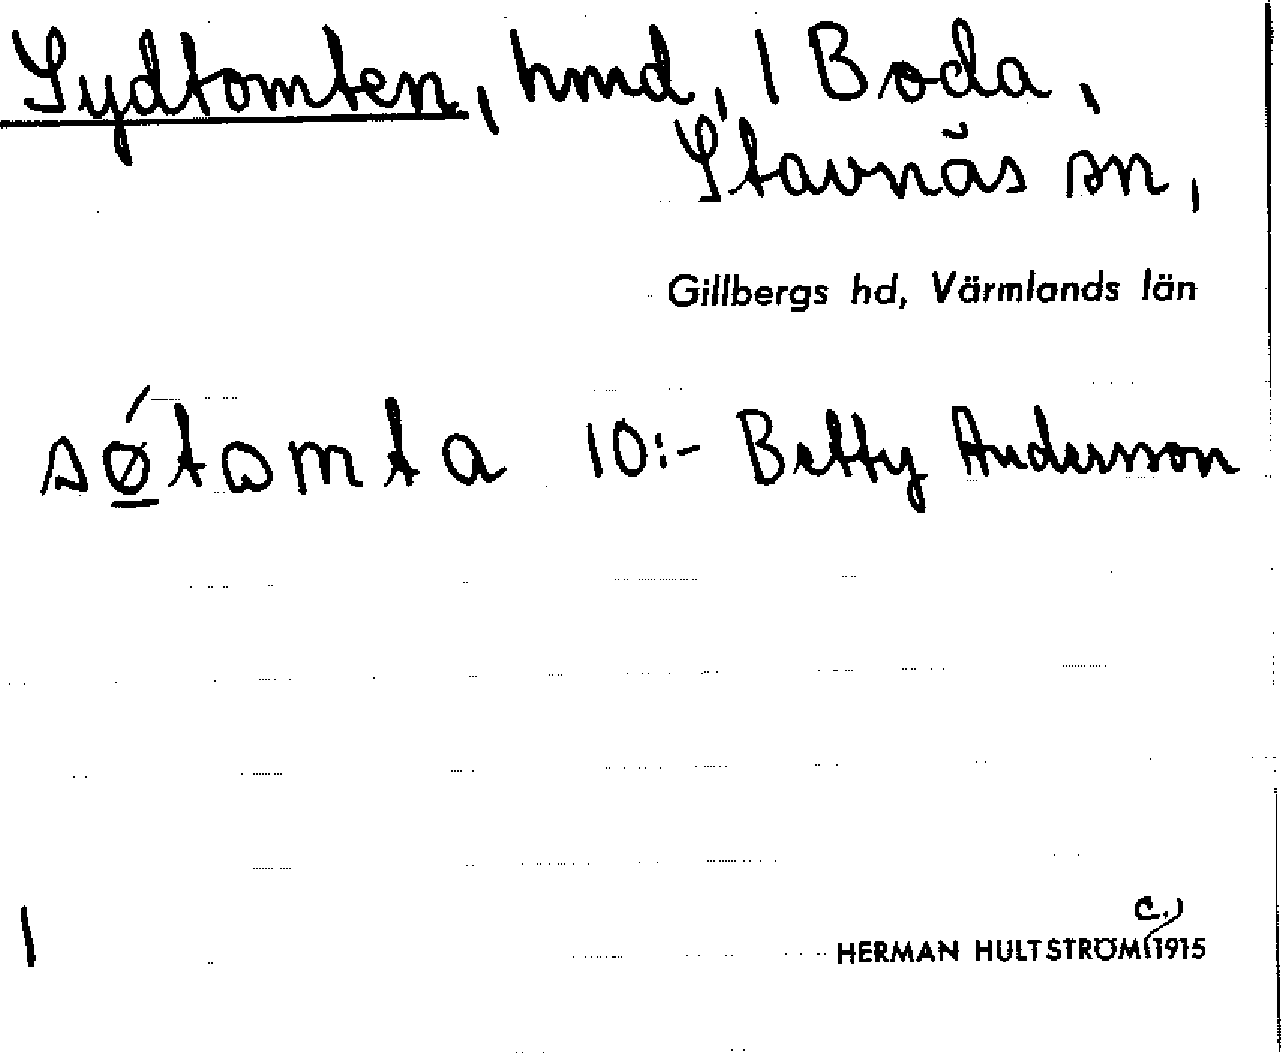 Sydtomten, hmd, 1 Boda,
Stavnäs sn,
Gillbergs hd, Värmlands län
sǿtomta 10:- Betty Andersson
1
HERMAN HULTSTRÖM c. 1915